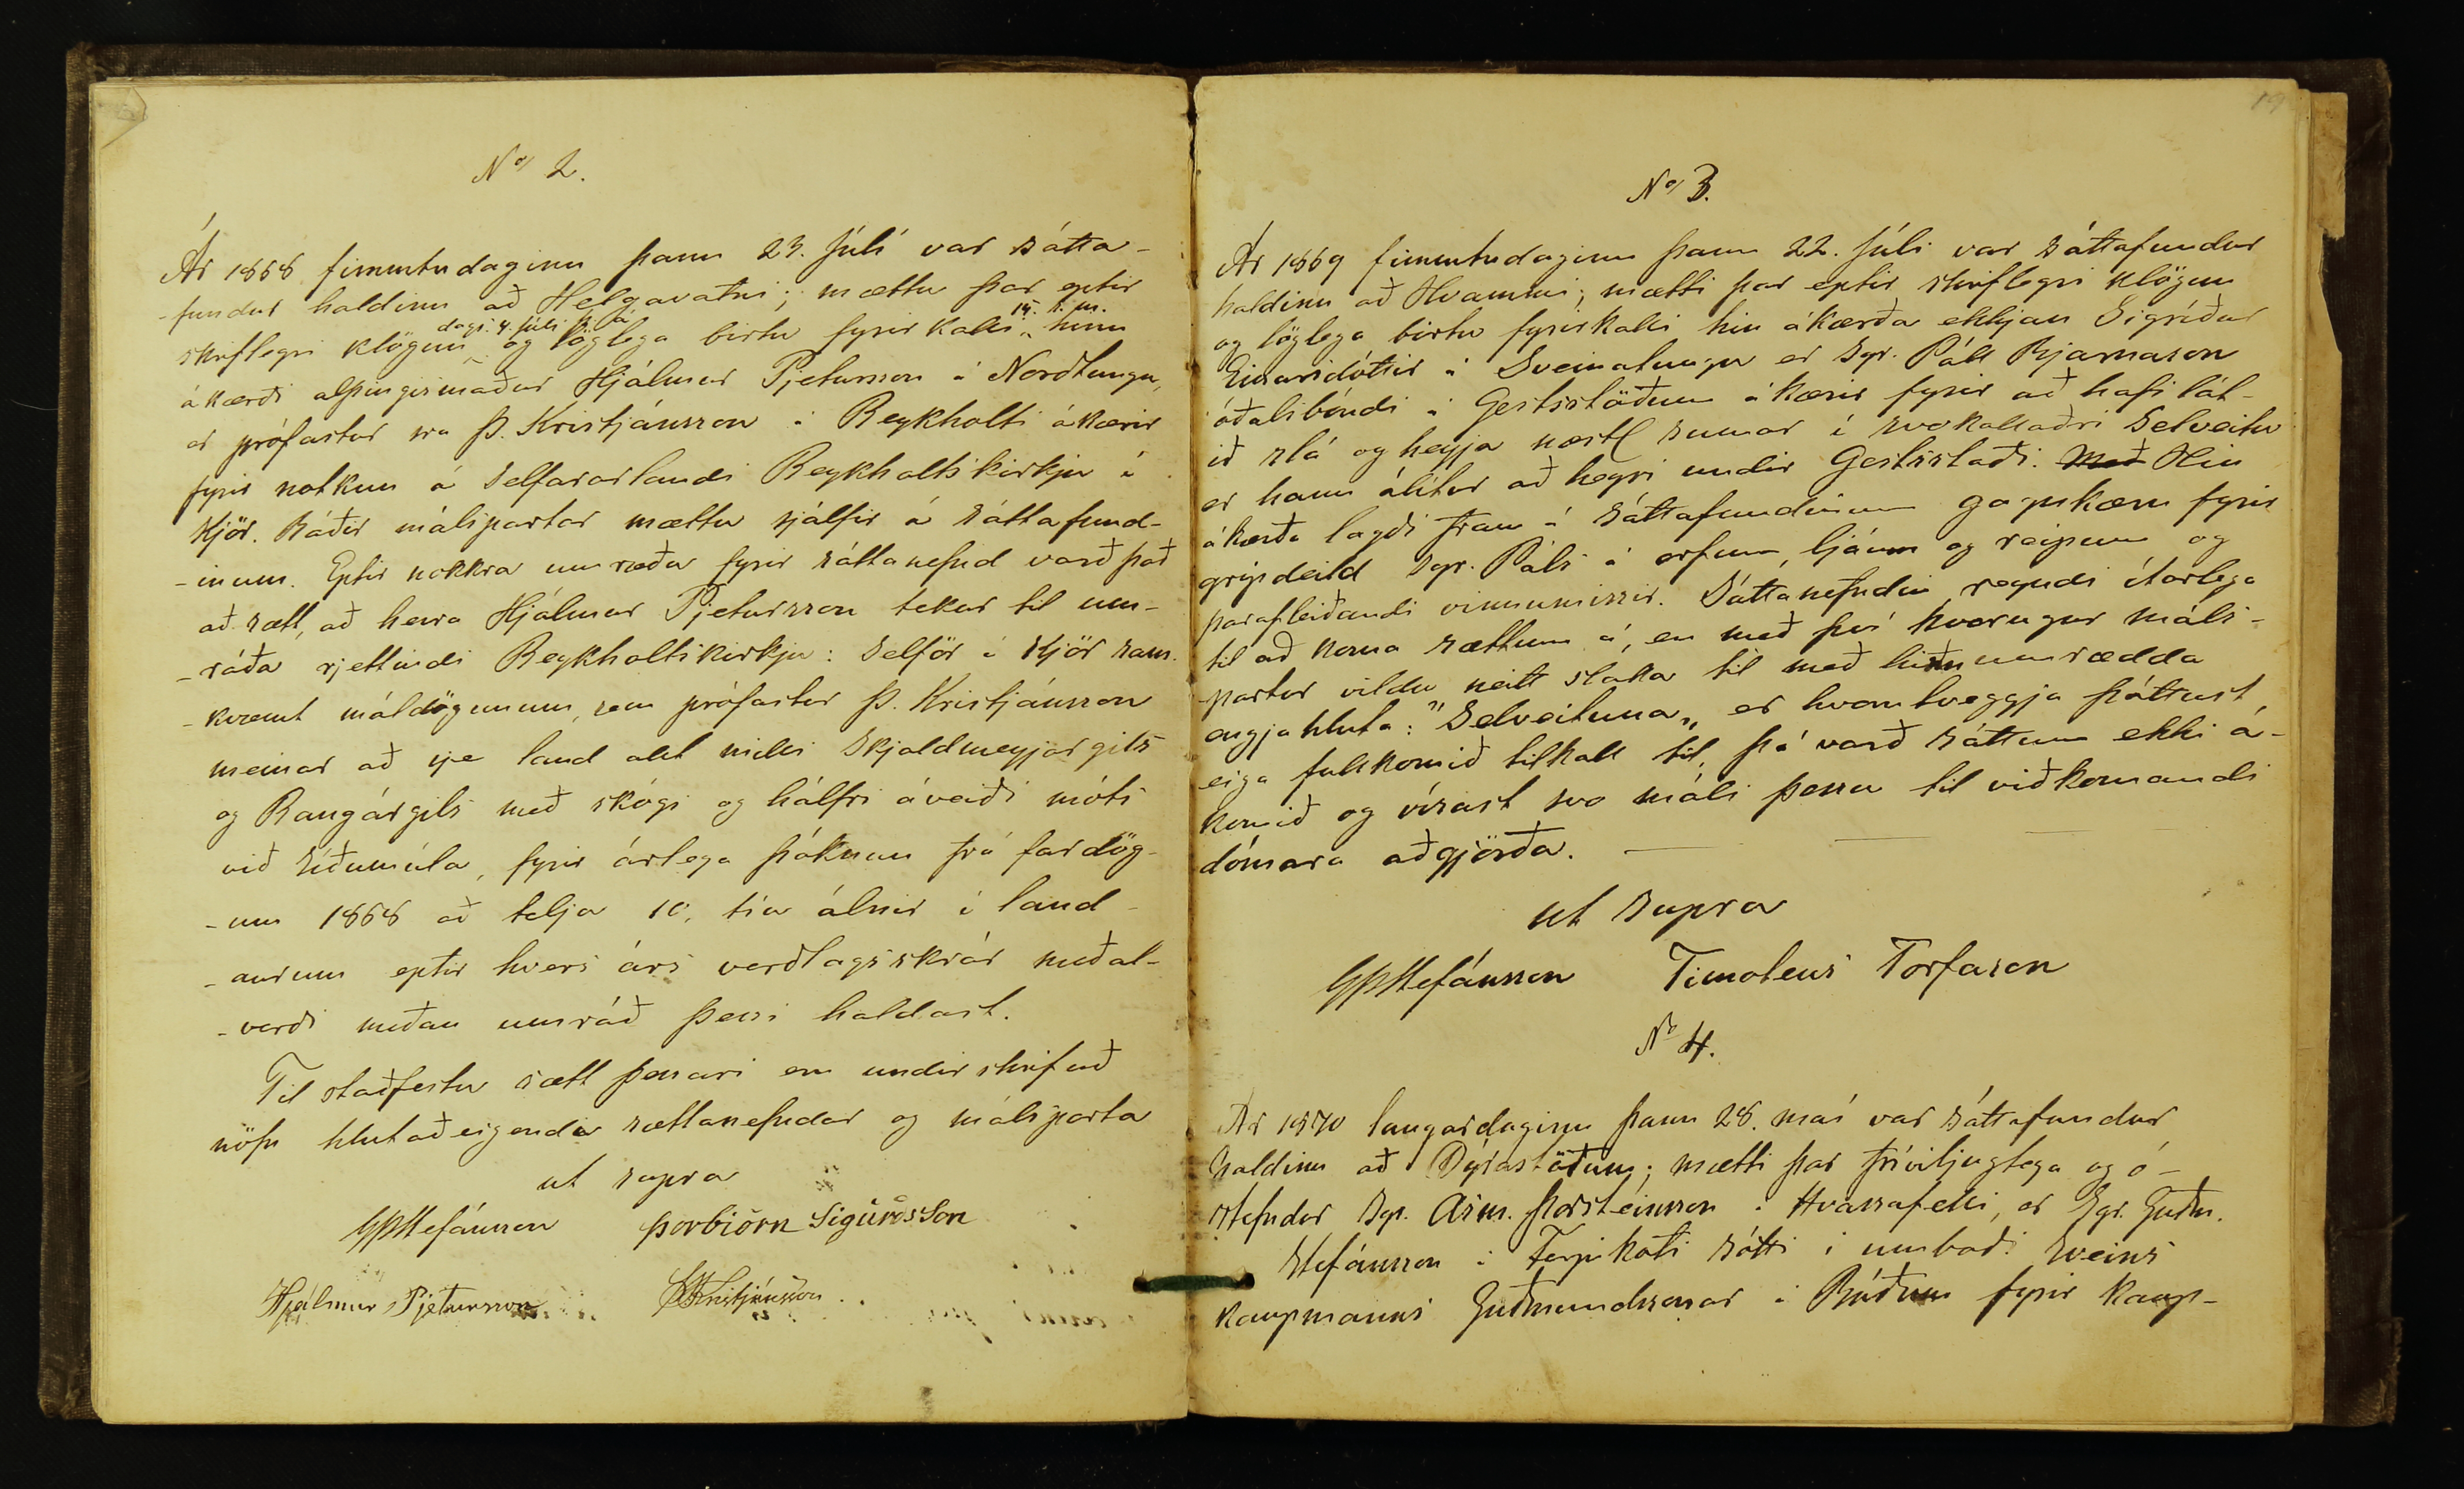 No/ 2.
Ár 1868 fimmtudaginn þann 23. Júlí var sátta-
-fundur haldinn að Helgavatni; mættu þar eptir
skriflegri klögun dags. 4. júlí þ. á. og löglega birtu fyrirkalli 14. s. m. hinn
ákærði alþingismaður Hjálmur Pjetursson á Norðtungu,
er prófastur sra Þ. Kristjánsson á Reykholti ákærir
fyrir notkun á selfararlandi Reykholtskirkju á
Kjör. Báðir málspartar mættu sjálfir á sáttafund-
-inum. Eptir nokkra umræðu fyrir sáttanefnd varð það
að sætt, að herra Hjálmur Pjetursson tekur til um-
-ráða rjettindi Reykholtskirkju: Selför í Kjör sam-
-kvæmt máldögunum, sem prófastur Þ. Kristjánsson
meinar að sje land allt milli Skjaldmeyjargils
og Rangárgils með skógi og hálfri áveiði móts
við Síðumúla, fyrir árlega þóknun frá fardög-
-um 1868 að telja 10, tíu álnir í land-
-aurum eptir hvers árs verðlagsskrár meðal-
-verði meðan umráð þessi haldast.
Til staðfestu sætt þessari eru undirskrifuð
nöfn hlutaðeigenda sættanefndar og málsparta
ut supra
GPStefánsson Þorbiörn Sigurðsson
Hjálmur Pjetursson ÞKristjánsson.
19
No/ 3.
Ár 1869 fimmtudaginn þann 22. Júli var sáttafundur
haldinn að Hvammi; mætti þar eptir skriflegri klögun
og löglega birtu fyrirkalli hin ákærða ekkjan Sigríður
Einarsdóttir á Sveinatungu er Sgr. Páll Bjarnason
óðalsbóndi á Gestsstöðum ákærir fyrir að hafi lát-
ið slá og heyja næstl sumar í svokallaðri Selveitu
er hann álítur að heyri undir Gestsstaði. Með Hin
ákærða lagði fram á sáttafundinum gagnkæru fyrir
gripdeild Sgr. Páls á orfum, ljáum og reipum og
þarafleiðandi vinnumissir. Sáttanefndin reyndi ítarlega
til að koma sættum á, en með því hvorugur máls-
partur vildu neitt slaka til með hið umrædda
engjahluta: "Selveituna„ er hvortveggja þóttust
eiga fullkomið tilkall til, þá varð sáttum ekki á-
komið og vísast svo máli þessu til viðkomandi
dómara aðgjörða.
ut supra
GPStefánsson Timoteus Torfason
No 4.
Ár 1870 laugardaginn þann 28. maí var sáttafundur
haldinn að Dýrastöðum; mætti þar fríviljuglega og ó-
stefndur Sgr. Asm. Þorsteinsson á Hvassafelli, er Sgr. Guðm.
Stefánsson á Ferjukoti sótti í umboði Sveins
kaupmanns Guðmundssonar á Búðum fyrir kaup-